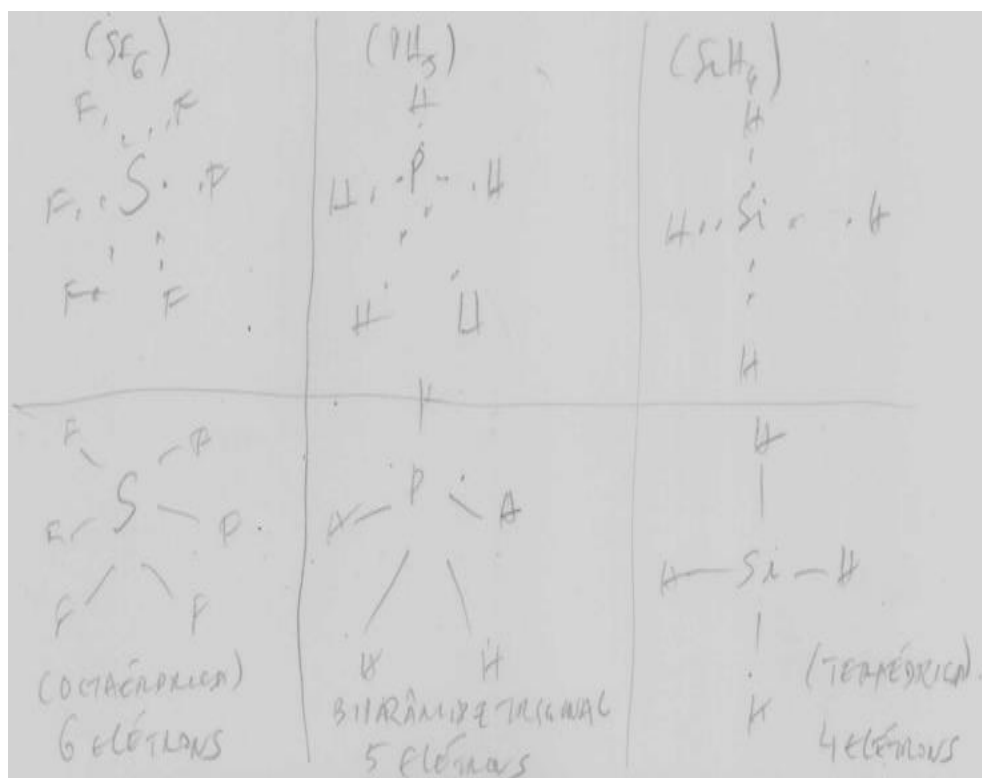 (SF6)
F F
F S F
F F
(PH5)
H
H P H
H H
(SiH4)
H
H Si H
H
F F
F S F
F F
(OCTAÉDRICA)
6 ELÉTRONS
H
H P H
H H
BIPIRÂMIDE TRIGONAL
5 ELÉTRONS
H
H Si H
H
(TETRAÉDRICA)
4 ELÉTRONS